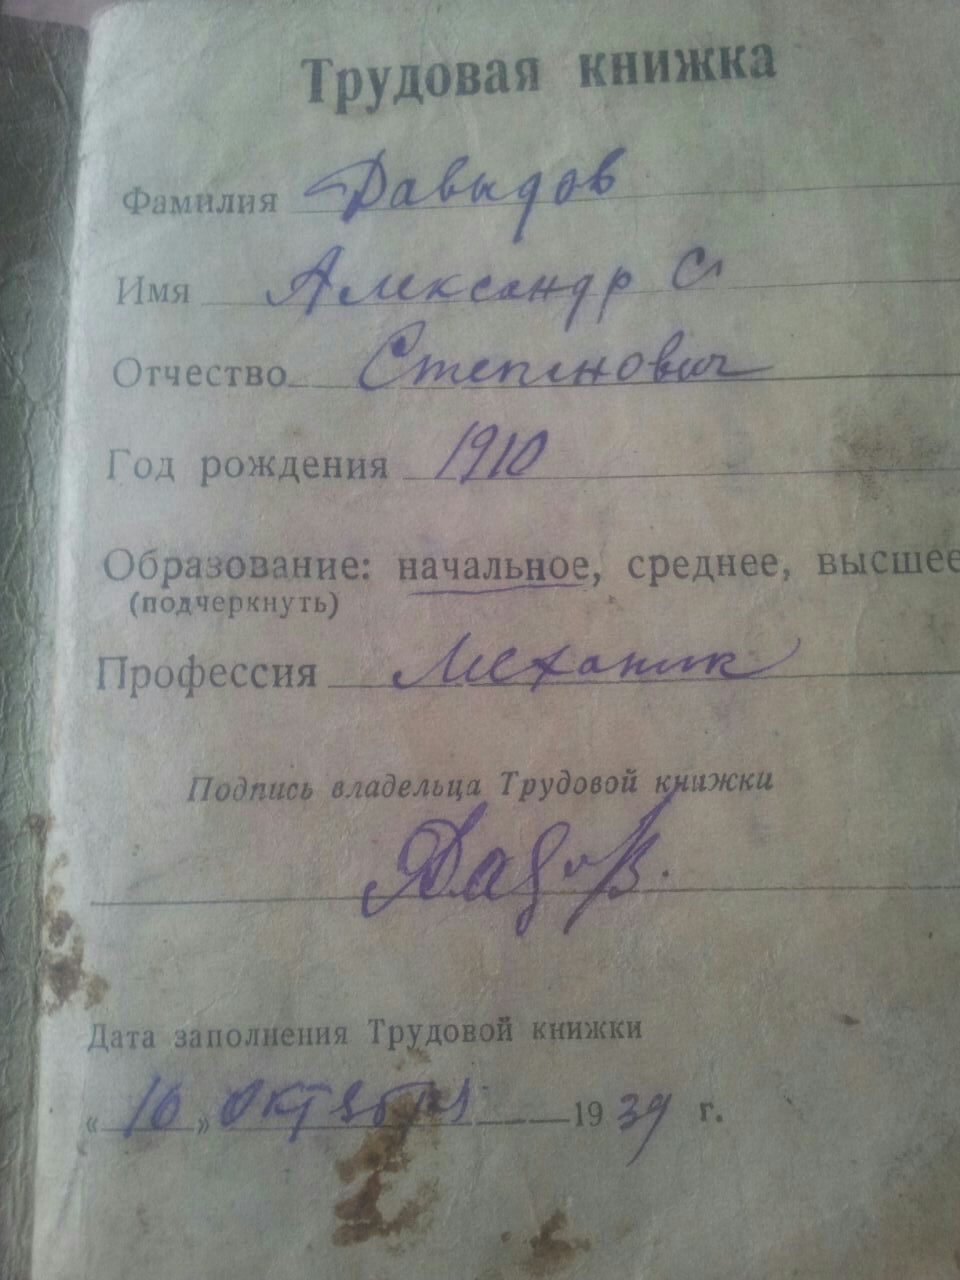 Трудовая книжка
Фамилия Давыдов
Имя Александр С
Отчество Степанович
Год рождения 1910
Образование: начальное, среднее, высшее
(подчеркнуть)
Профессия Механик
Подпись владельца Трудовой книжки
Дата заполнения Трудовой книжки
«10» октября 1939 г.